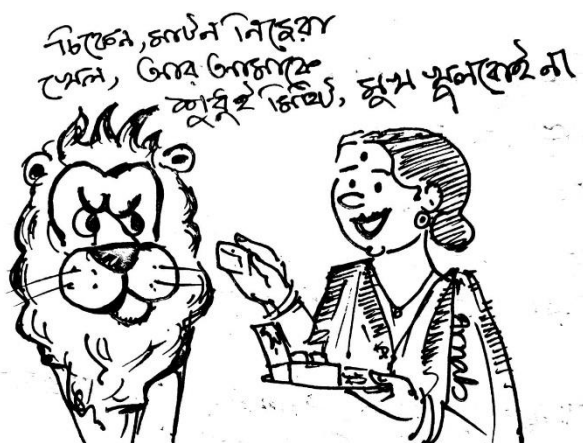 চিকেন, মাটন নিজেরা
খেল, আর আমাকে
শুধুই মিষ্টি, মুখ খুলবোই না